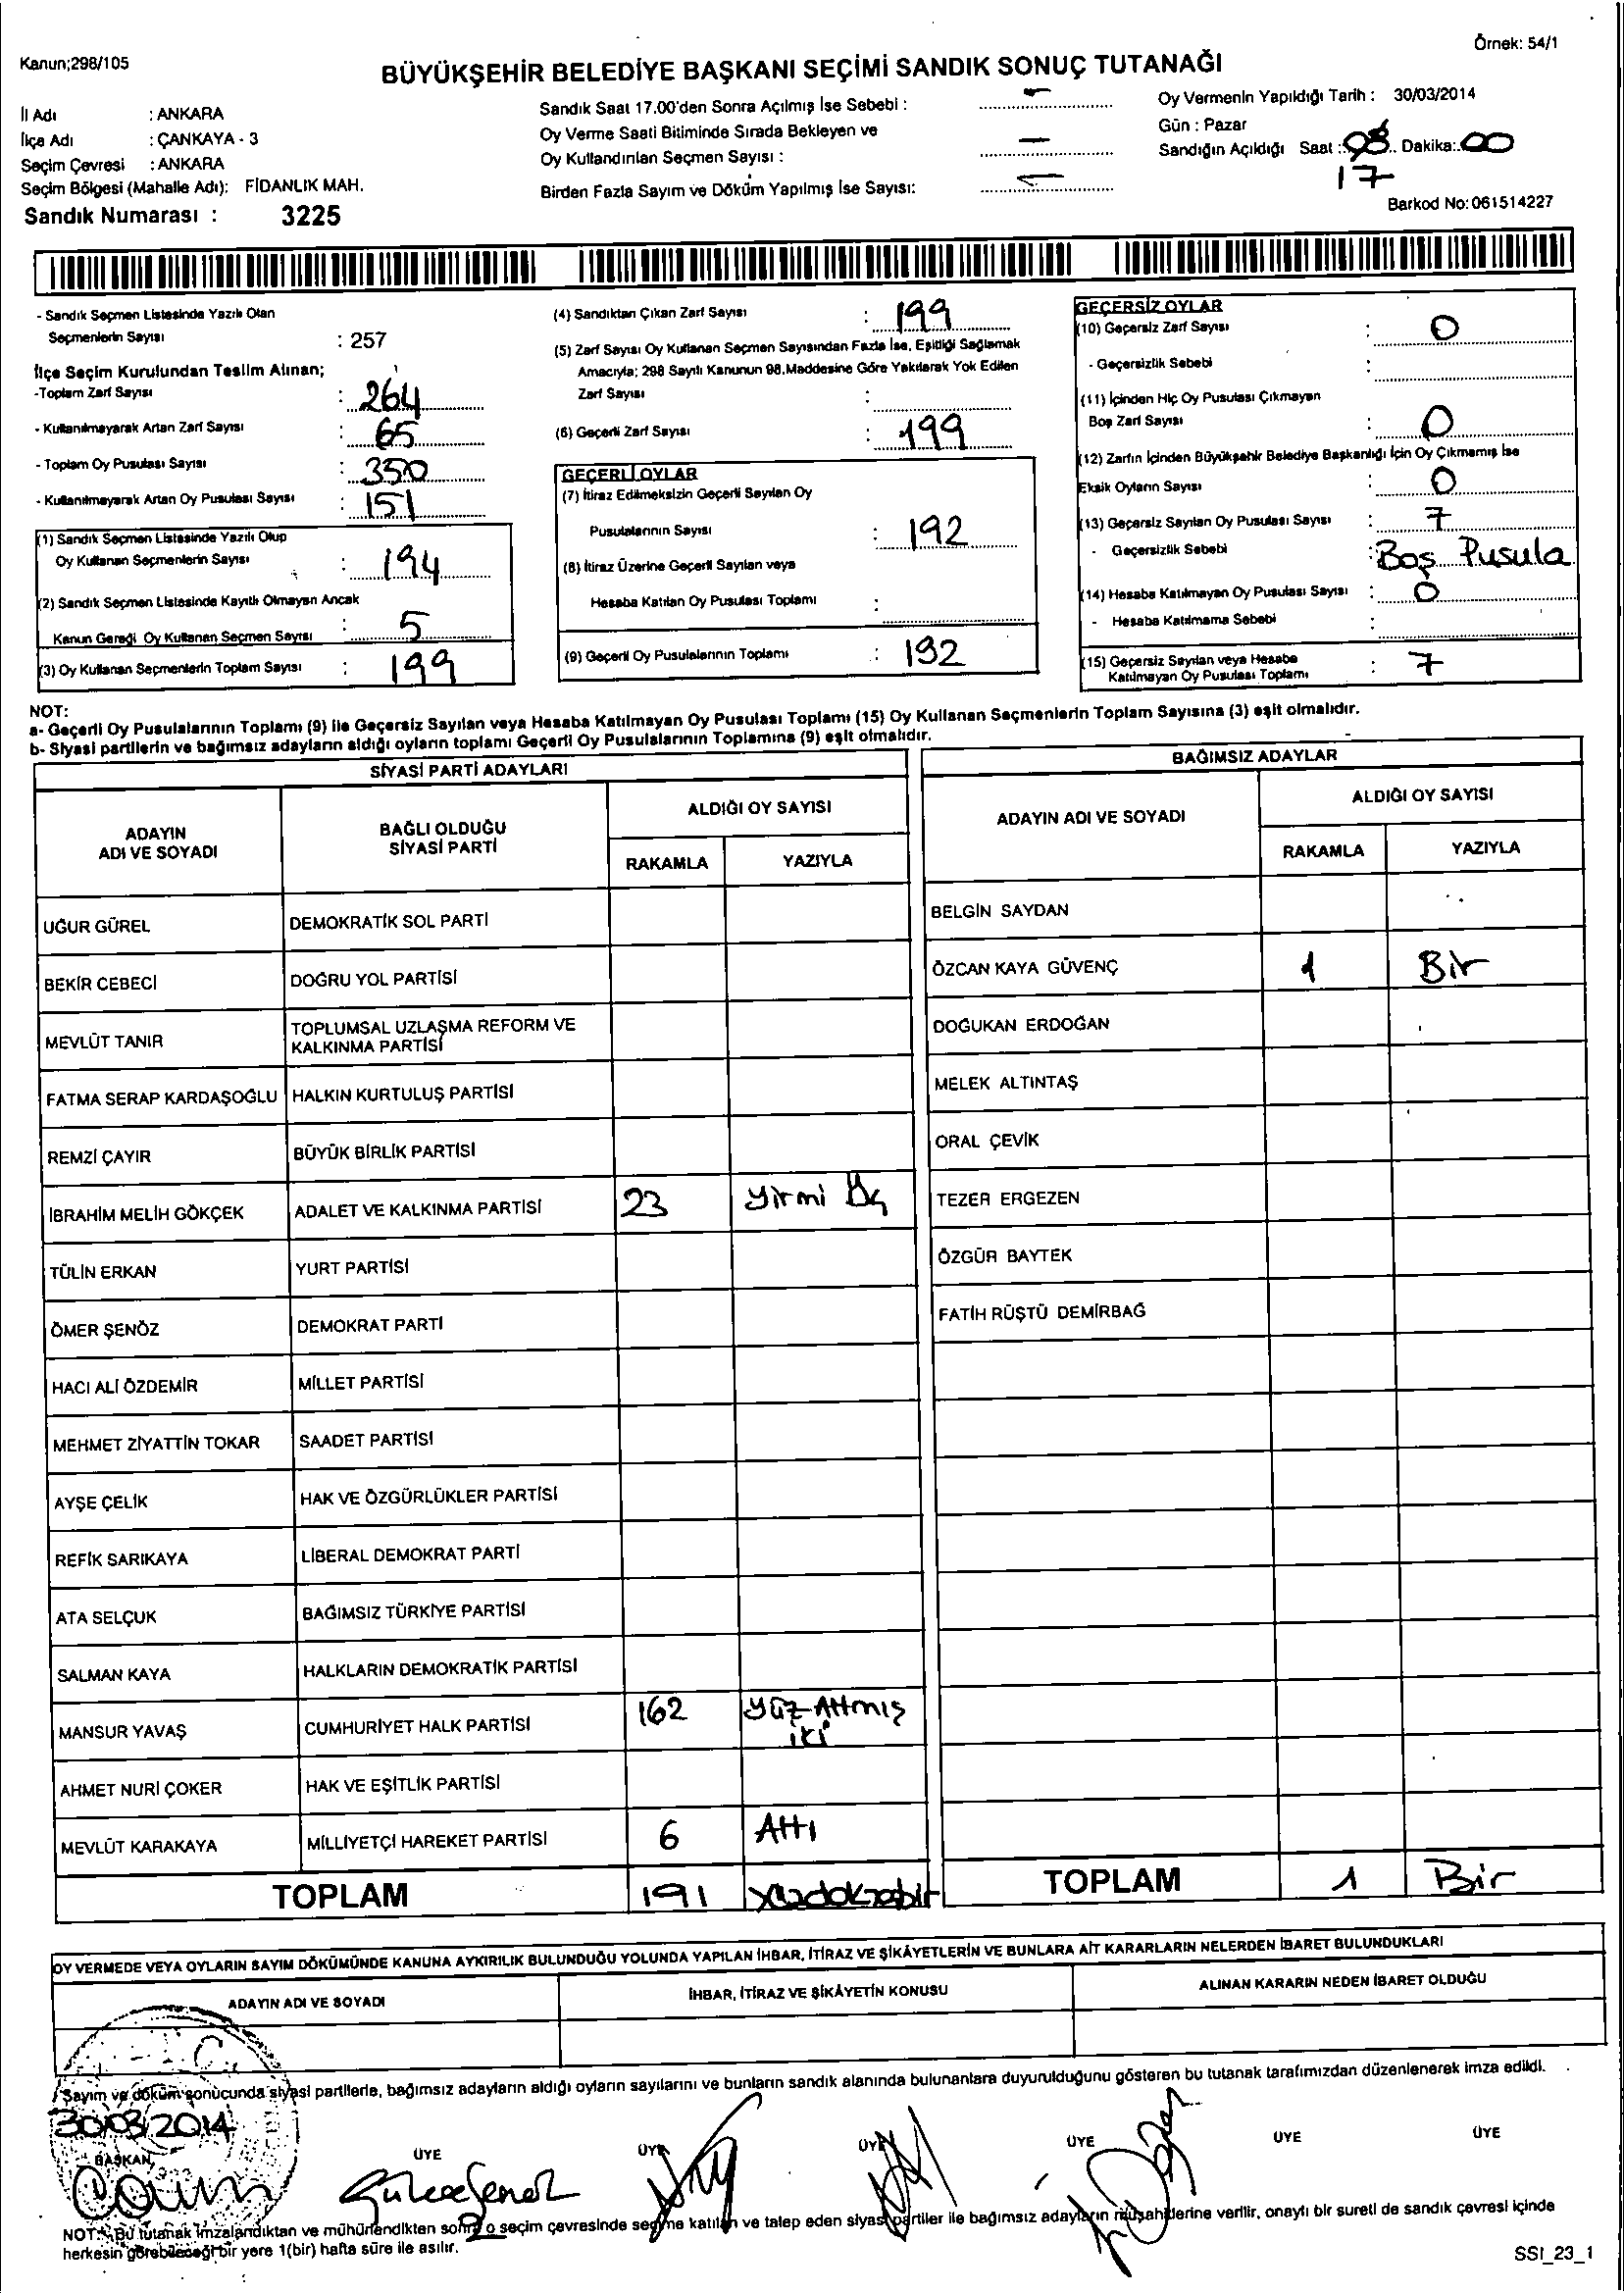 Örnek: 54/1
Kanun;298/105
BÜYÜKŞEHİR BELEDİYE BAŞKANI SEÇİMİ SANDIK SONUÇ TUTANAĞI
İl Adı : ANKARA
İlçe Adı : ÇANKAYA - 3
Seçim Çevresi : ANKARA
Seçim Bölgesi (Mahalle Adı): FİDANLIK MAH.
Sandık Numarası : 3225
Sandık Saat 17.00'den Sonra Açılmış İse Sebebi : –
Oy Verme Saati Bitiminde Sırada Bekleyen ve
Oy Kullandırılan Seçmen Sayısı : –
Birden Fazla Sayım ve Döküm Yapılmış İse Sayısı: –
Oy Vermenin Yapıldığı Tarih : 30/03/2014
Gün : Pazar
Sandığın Açıldığı Saat : 08 Dakika: 00
17
Barkod No: 061514227
- Sandık Seçmen Listesinde Yazılı Olan
Seçmenlerin Sayısı : 257
İlçe Seçim Kurulundan Teslim Alınan;
-Toplam Zarf Sayısı : 264
- Kullanılmayarak Artan Zarf Sayısı : 65
- Toplam Oy Pusulası Sayısı : 350
- Kullanılmayarak Artan Oy Pusulası Sayısı : 151
(1) Sandık Seçmen Listesinde Yazılı Olup
Oy Kullanan Seçmenlerin Sayısı : 194
(2) Sandık Seçmen Listesinde Kayıtlı Olmayan Ancak
Kanun Gereği Oy Kullanan Seçmen Sayısı : 5
(3) Oy Kullanan Seçmenlerin Toplam Sayısı : 199
(4) Sandıktan Çıkan Zarf Sayısı : 199
(5) Zarf Sayısı Oy Kullanan Seçmen Sayısından Fazla İse, Eşitliği Sağlamak
Amacıyla; 298 Sayılı Kanunun 98.Maddesine Göre Yakılarak Yok Edilen
Zarf Sayısı :
(6) Geçerli Zarf Sayısı : 199
GEÇERLİ OYLAR
(7) İtiraz Edilmeksizin Geçerli Sayılan Oy
Pusulalarının Sayısı : 192
(8) İtiraz Üzerine Geçerli Sayılan veya
Hesaba Katılan Oy Pusulası Toplamı :
(9) Geçerli Oy Pusulalarının Toplamı : 192
GEÇERSİZ OYLAR
(10) Geçersiz Zarf Sayısı : 0
- Geçersizlik Sebebi :
(11) İçinden Hiç Oy Pusulası Çıkmayan
Boş Zarf Sayısı : 0
(12) Zarfın İçinden Büyükşehir Belediye Başkanlığı İçin Oy Çıkmamış İse
Eksik Oyların Sayısı : 0
(13) Geçersiz Sayılan Oy Pusulası Sayısı : 7
- Geçersizlik Sebebi : Boş Pusula
(14) Hesaba Katılmayan Oy Pusulası Sayısı : 0
- Hesaba Katılmama Sebebi :
(15) Geçersiz Sayılan veya Hesaba
Katılmayan Oy Pusulası Toplamı : 7
NOT:
a- Geçerli Oy Pusulalarının Toplamı (9) ile Geçersiz Sayılan veya Hesaba Katılmayan Oy Pusulası Toplamı (15) Oy Kullanan Seçmenlerin Toplam Sayısına (3) eşit olmalıdır.
b- Siyasi partilerin ve bağımsız adayların aldığı oyların toplamı Geçerli Oy Pusulalarının Toplamına (9) eşit olmalıdır.
SİYASİ PARTİ ADAYLARI
ADAYIN ADI VE SOYADI BAĞLI OLDUĞU SİYASİ PARTİ ALDIĞI OY SAYISI
RAKAMLA YAZIYLA
UĞUR GÜREL DEMOKRATİK SOL PARTİ
BEKİR CEBECİ DOĞRU YOL PARTİSİ
MEVLÜT TANIR TOPLUMSAL UZLAŞMA REFORM VE KALKINMA PARTİSİ
FATMA SERAP KARDAŞOĞLU HALKIN KURTULUŞ PARTİSİ
REMZİ ÇAYIR BÜYÜK BİRLİK PARTİSİ
İBRAHİM MELİH GÖKÇEK ADALET VE KALKINMA PARTİSİ 23 Yirmi Üç
TÜLİN ERKAN YURT PARTİSİ
ÖMER ŞENÖZ DEMOKRAT PARTİ
HACI ALİ ÖZDEMİR MİLLET PARTİSİ
MEHMET ZİYATTİN TOKAR SAADET PARTİSİ
AYŞE ÇELİK HAK VE ÖZGÜRLÜKLER PARTİSİ
REFİK SARIKAYA LİBERAL DEMOKRAT PARTİ
ATA SELÇUK BAĞIMSIZ TÜRKİYE PARTİSİ
SALMAN KAYA HALKLARIN DEMOKRATİK PARTİSİ
MANSUR YAVAŞ CUMHURİYET HALK PARTİSİ 162 Yüz Altmış iki
AHMET NURİ ÇOKER HAK VE EŞİTLİK PARTİSİ
MEVLÜT KARAKAYA MİLLİYETÇİ HAREKET PARTİSİ 6 Altı
TOPLAM 191
BAĞIMSIZ ADAYLAR
ADAYIN ADI VE SOYADI ALDIĞI OY SAYISI
RAKAMLA YAZIYLA
BELGİN SAYDAN
ÖZCAN KAYA GÜVENÇ 1 Bir
DOĞUKAN ERDOĞAN
MELEK ALTINTAŞ
ORAL ÇEVİK
TEZER ERGEZEN
ÖZGÜR BAYTEK
FATİH RÜŞTÜ DEMİRBAĞ
TOPLAM 1 Bir
OY VERMEDE VEYA OYLARIN SAYIM DÖKÜMÜNDE KANUNA AYKIRILIK BULUNDUĞU YOLUNDA YAPILAN İHBAR, İTİRAZ VE ŞİKÂYETLERİN VE BUNLARA AİT KARARLARIN NELERDEN İBARET BULUNDUKLARI
ADAYIN ADI VE SOYADI İHBAR, İTİRAZ VE ŞİKÂYETİN KONUSU ALINAN KARARIN NEDEN İBARET OLDUĞU
Sayım ve döküm sonucunda siyasi partilerle, bağımsız adayların aldığı oyların sayılarını ve bunların sandık alanında bulunanlara duyurulduğunu gösteren bu tutanak tarafımızdan düzenlenerek imza edildi.
30.03.2014
BAŞKAN ÜYE ÜYE ÜYE ÜYE ÜYE ÜYE
NOT: Bu tutanak imzalandıktan ve mühürlendikten sonra o seçim çevresinde seçime katılan ve talep eden siyasi partiler ile bağımsız adayların müşahitlerine verilir, onaylı bir sureti de sandık çevresi içinde
herkesin görebileceği bir yere 1(bir) hafta süre ile asılır.
SSI_23_1